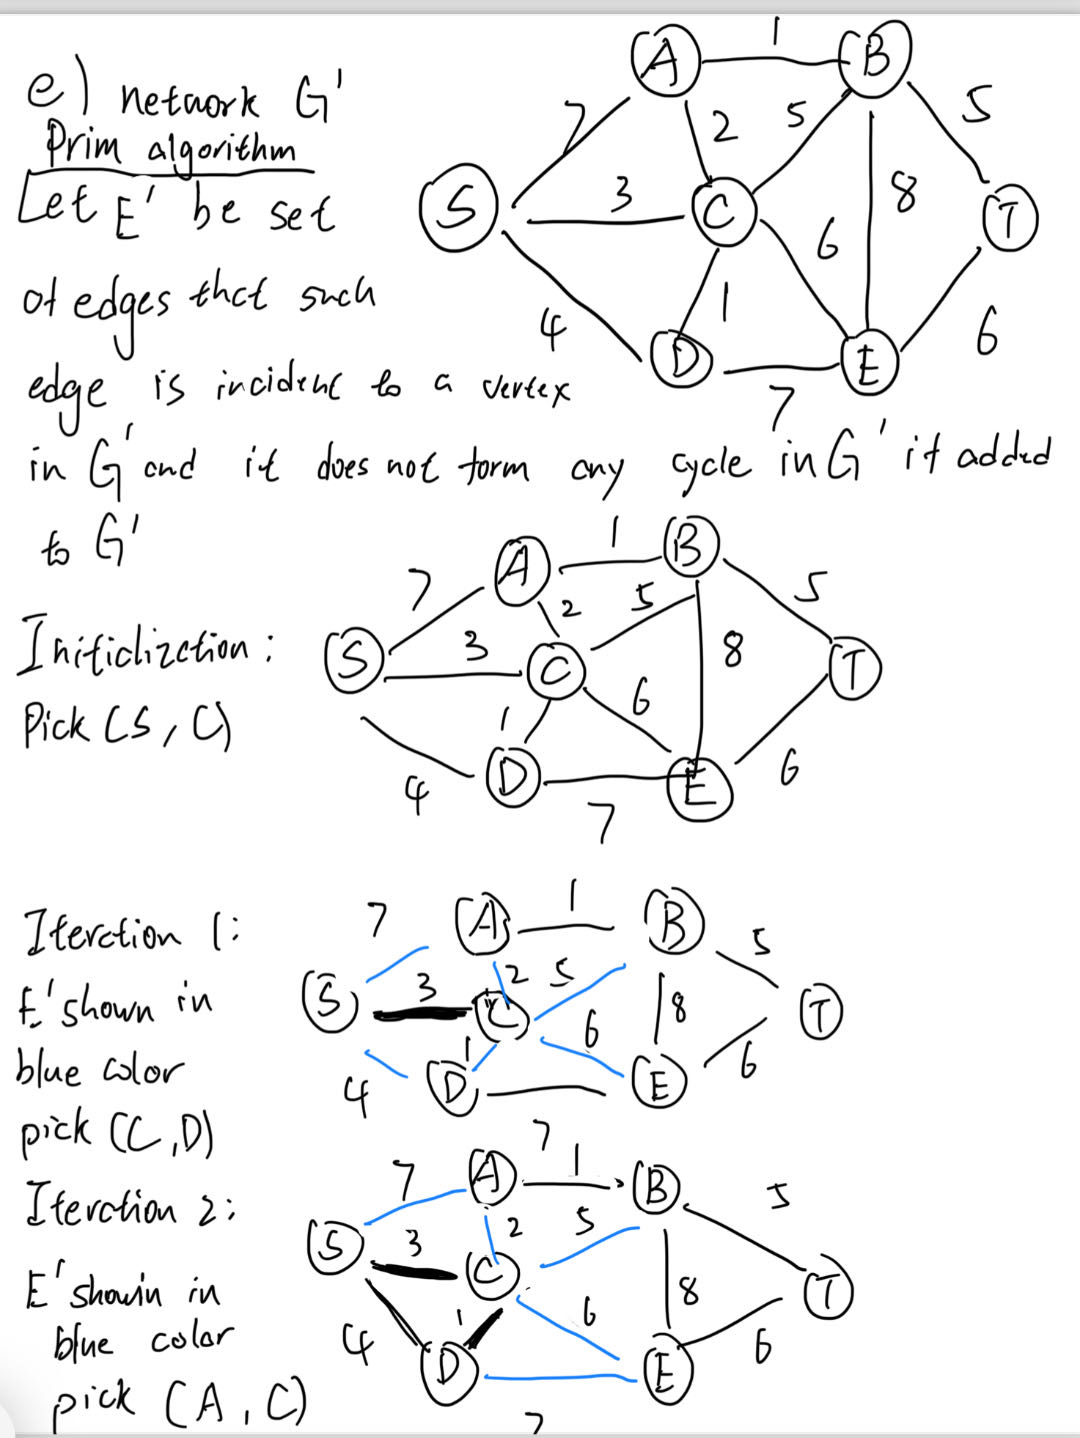 e) network G'
Prim algorithm
Let E' be set
of edges that such
edge is incident to a vertex
in G' and it does not form any cycle in G' if added
to G'
A 1 B
7 2 5 5
S 3 C 8 T
6
4 1 6
D E
7
Initialization:
Pick (S, C)
A 1 B
7 2 5 5
S 3 C 8 T
1 6
4 D E 6
7
Iteration 1:
E' shown in
blue color
pick (C,D)
7 A 1 B 5
S 3 2 5
C 6 8 T
4 1 D E 6
7
Iteration 2:
E' shown in
blue color
pick (A, C)
7 A 1 B 5
S 3 2 5
C 8 T
4 1 6 6
D E
7